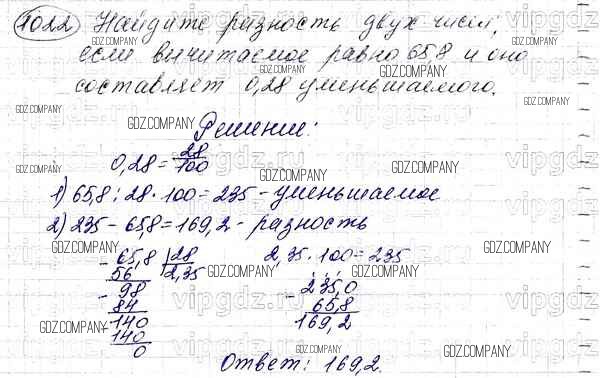 1022 Найдите разность двух чисел,
если вычитаемое равно 65,8 и оно
составляет 0,28 уменьшаемого.
Решение:
0,28 = 28/100
1) 65,8 : 28 · 100 = 235 - уменьшаемое
2) 235 - 65,8 = 169,2 - разность
- 65,8 | 28 2,35 · 100 = 235
56 2,35
- 98 - 235,0
84 65,8
- 140 169,2
140
0
Ответ: 169,2.